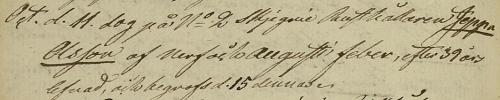 Oct. d. 11. dog på No 2 Skjegrie Rusthållaren Jeppa
Assson af Nerf och august feber, efter 39 års
lefnad, och begrofs d. 15 dennas